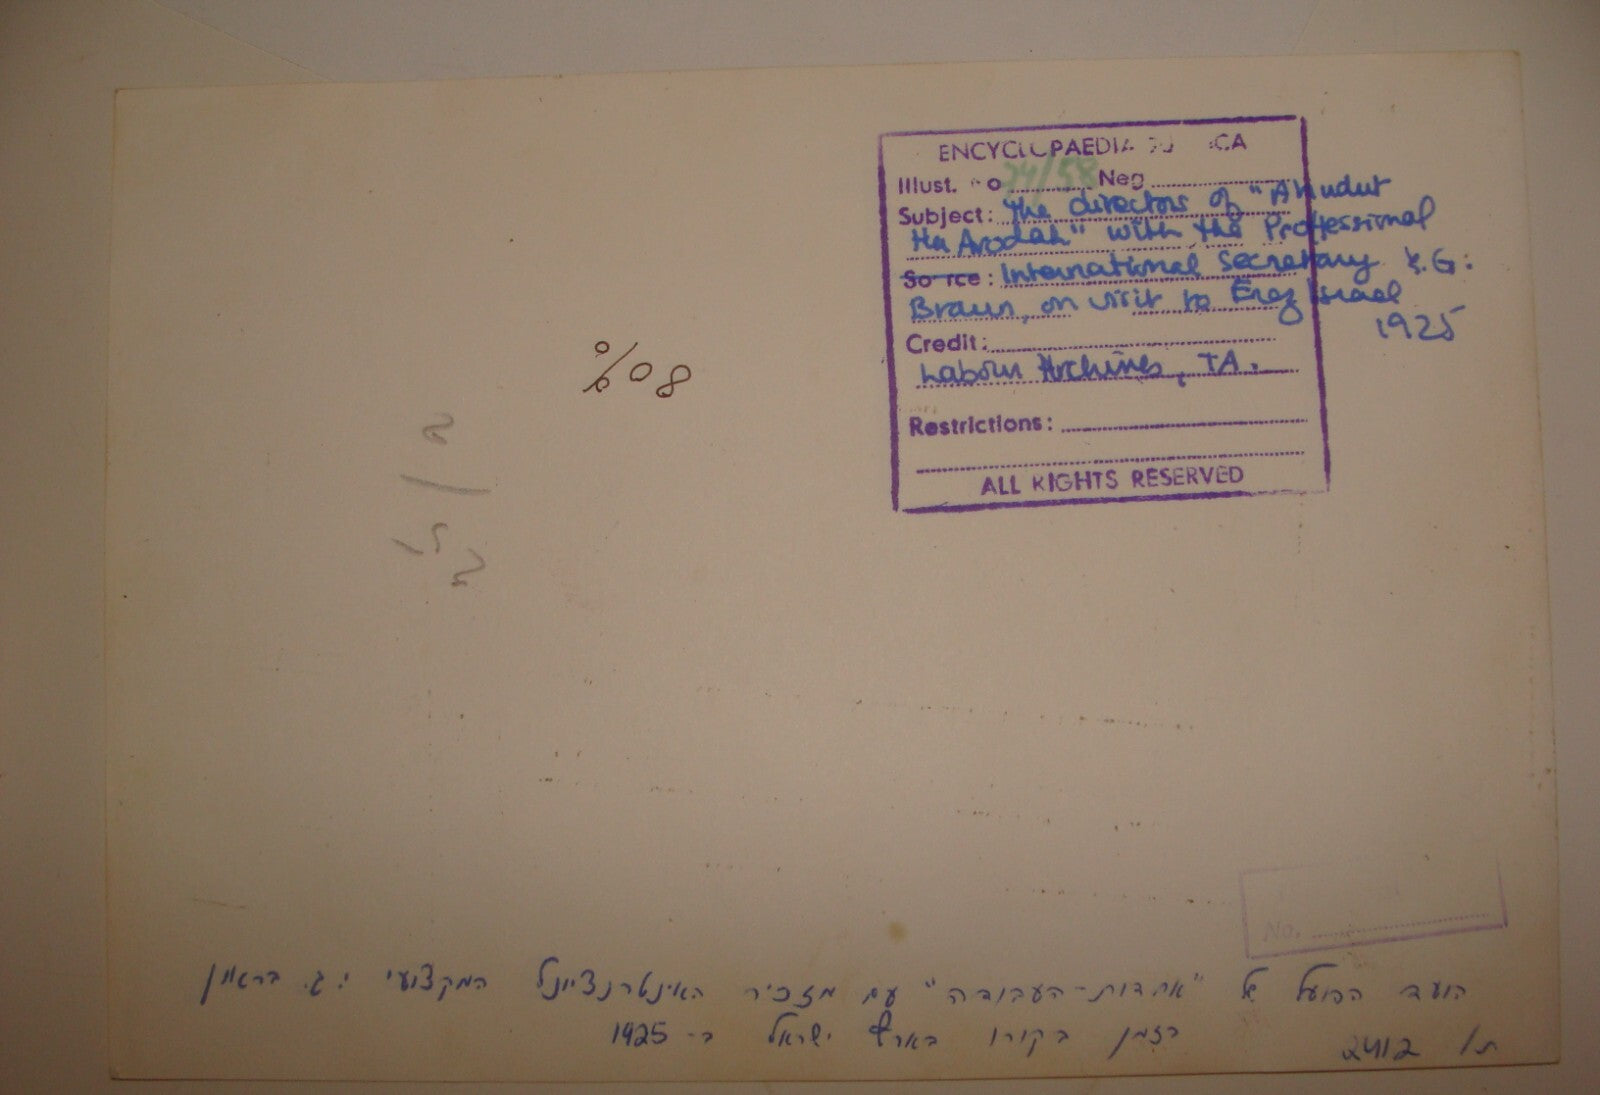 ENCYCLOPAEDIA
Illust. o 74/58 Neg
Subject: The directors of "Ahudut
Ha Avodah" with the Professional
So rce: International secretary Y.G:
Braun, on visit to Erez Israel
1925
Credit:
Labour Archives, TA.
Restrictions:
ALL RIGHTS RESERVED
%08
No.
הועד הפועל של "אחדות-העבודה" עם מזכיר האינטרנציונל המקצועי י. ג. בראון
בזמן בקורו בארץ ישראל ב- 1925
ת/ 2412